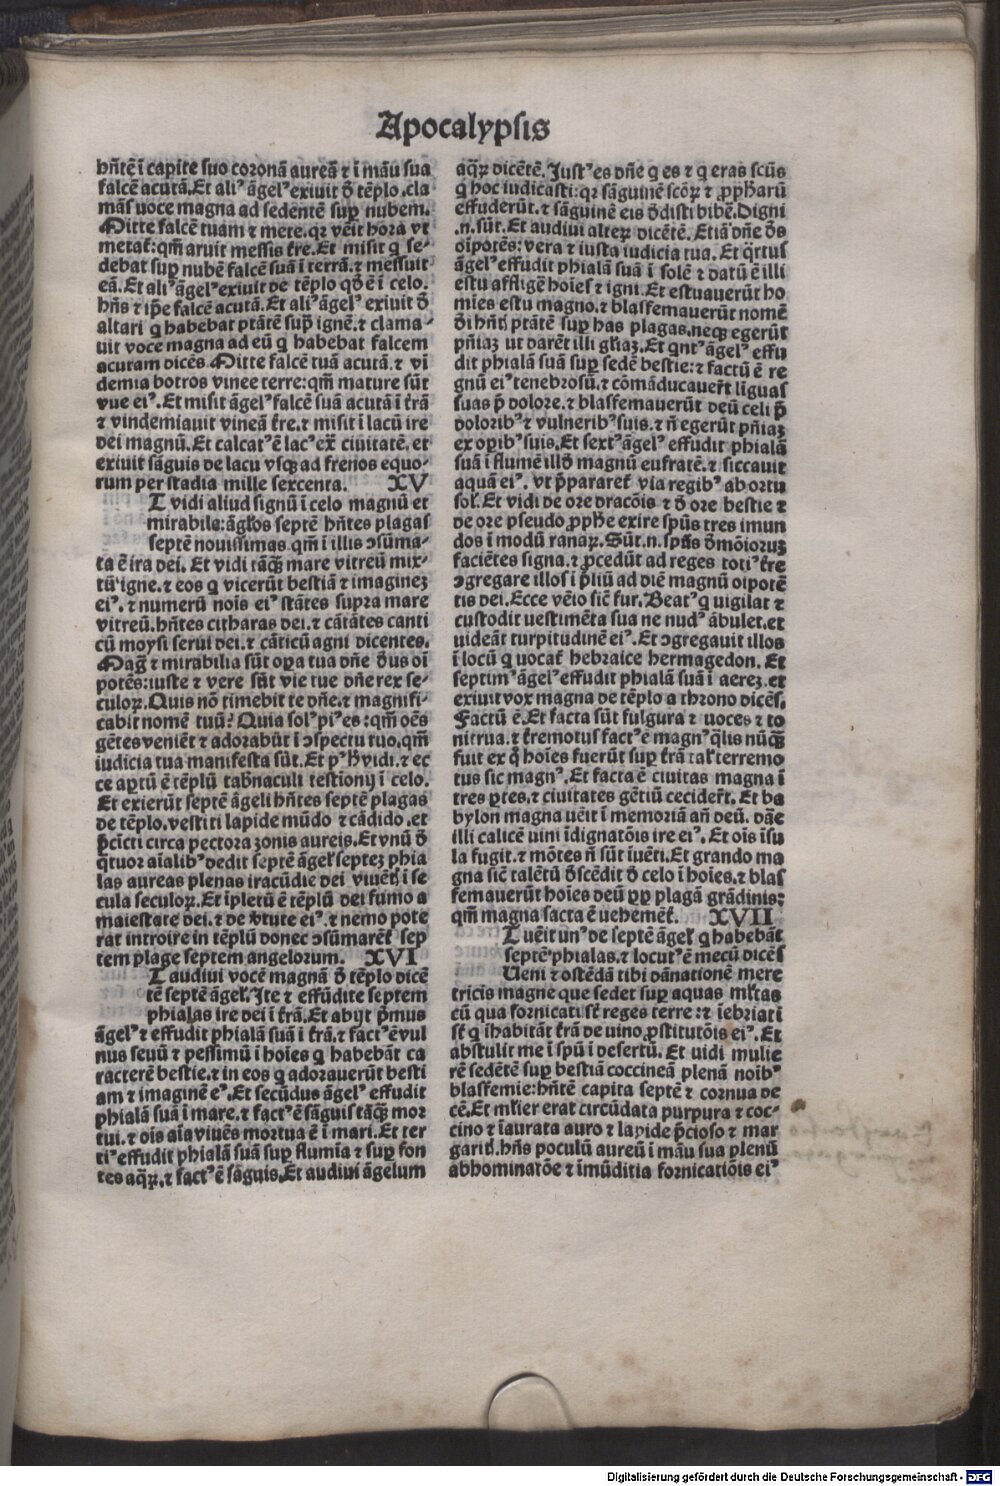 Apocalypsis
hñtē ī capite suo coronā aureā ⁊ ī māu sua
falcē acutā. Et aliꝰ āgelꝰ exiuit ð tēplo. cla
māſ uoce magna ad sedentē suꝑ nubem.
Mitte falcē tuam ⁊ mete. qꝛ vēit hora vt
metat᷑: qm̄ aruit messis t̄re. Et misit q se-
debat suꝑ nubē falcē suā ī terrā. ⁊ messuit
eā. Et aliꝰ āgelꝰ exiuit de tēplo qð ē ī celo.
hñs ⁊ ip̄e falcē acutā. Et aliꝰ āgelꝰ exiuit ð
altari q habebat ptātē sup̄ ignē. ⁊ clama-
uit voce magna ad eū q habebat falcem
acutam dicēs. Mitte falcē tuā acutā. ⁊ vī
demia botros vinee terre: qm̄ mature sūt
vue eiꝰ. Et misit āgelꝰ falcē suā acutā ī t̄rā
⁊ vindemiauit vineā t̄re. ⁊ misit ī lacū ire
dei magnū. Et calcatꝰ ē lacꝰ ex̄ ciuitatē. et
exiuit sāguis de lacu vsqꝫ ad frenos equo-
rum per stadia mille sexcenta. XV
T vidi aliud signū ī celo magnū et
mirabile: āgl̄os septē hñtes plagas
septē nouissimas. qm̄ ī illis ꝯsūma-
ta ē ira dei. Et vidi tāqꝫ mare vitreū mix-
tū igne. ⁊ eos q vicerūt bestiā ⁊ imagineꝫ
eiꝰ. ⁊ numerū nois eiꝰ stātes supra mare
vitreū. hñtes citharas dei. ⁊ cātātes canti
cū moysi serui dei. ⁊ cāticū agni dicentes.
Maḡ ⁊ mirabilia sūt oꝑa tua dñe ðus oī
potēs: iuste ⁊ vere sūt vie tue dñe rex se-
culoꝝ. Quis nō timebit te dñe. ⁊ magnifi-
cabit nomē tuū? Quia solꝰ piꝰ es: qm̄ oēs
gētes veniēt ⁊ adorabūt ī ꝯspectu tuo. qm̄
iudicia tua manifesta sūt. Et pꝰ h̄ vidi. ⁊ ec
ce aꝑtū ē tēplū tab̄naculi testionij ī celo.
Et exierūt septē āgeli hñtes septē plagas
de tēplo. vestiti lapide mūdo ⁊ cādido. et
p̄cīcti circa pectora zonis aureis. Et vnū ð
q̄tuor aīalibꝰ dedit septē āgel̄ septeꝫ phia
las aureas plenas iracūdie dei viuēt᷑ ī se
cula seculoꝝ. Et īpletū ē tēplū dei fumo a
maiestate dei. ⁊ de v̄tute eiꝰ. ⁊ nemo pote
rat introire in tēplū donec ꝯsūmarēt᷑ sep
tem plage septem angelorum. XVI
T audiui vocē magnā ð tēplo dicē
tē septē āgel̄. Ite ⁊ effūdite septem
phialas ire dei ī t̄rā. Et abijt p̄mus
āgelꝰ ⁊ effudit phialā suā ī t̄rā. ⁊ factꝰ ē vul
nus seuū ⁊ pessimū ī hoīes q habebāt ca
racterē bestie. ⁊ in eos q adorauerūt besti
am ⁊ imaginē eꝰ. Et secūdus āgelꝰ effudit
phialā suā ī mare. ⁊ factꝰ ē sāguis tāqꝫ mor
tui. ⁊ oīs aīa viuēs mortua ē ī mari. Et ter
tiꝰ effudit phialā suā suꝑ flumīa ⁊ suꝑ fon
tes aq̄ꝝ. ⁊ factꝰ ē sāguis. Et audiui āgelum
aq̄ꝝ dicētē. Justꝰ es dñe q es ⁊ q eras scūs
q hoc iudicasti: qꝛ sāguinē scōꝝ ⁊ ꝓph̄arū
effuderūt. ⁊ sāguinē eis ðdisti bibē. Digni
.n. sūt. Et audiui alteꝝ dicētē. Etiā dñe ðs
oīpotēs: vera ⁊ iusta iudicia tua. Et q̄rtus
āgelꝰ effudit phialā suā ī solē ⁊ datū ē illi
estu affligē hoīes ⁊ igni. Et estuauerūt ho
mīes estu magno. ⁊ blasfemauerūt nomē
ði hñt᷑ ptātē suꝑ has plagas. neqꝫ egerūt
pñiaꝫ ut darēt illi gl̄iaꝫ. Et qntꝰ āgelꝰ effu
dit phialā suā suꝑ sedē bestie: ⁊ factū ē re
gnū eiꝰ tenebrosū. ⁊ cōmāducauer̄t līguas
suas p̄ dolore. ⁊ blasfemauerūt deū celi p̄
doloribꝰ ⁊ vulneribꝰ suis. ⁊ ñ egerūt pñiaꝫ
ex oꝑibꝰ suis. Et sextꝰ āgelꝰ effudit phialā
suā ī flumē illð magnū eufratē. ⁊ siccauit
aquā eiꝰ. vt p̄pararet᷑ via regibꝰ ab ortu
sol̄. Et vidi de ore dracōis ⁊ ð ore bestie ⁊
de ore pseudo ꝓph̄e exire sp̄us tres imun
dos ī modū ranaꝝ. Sūt .n. sp̄us ðmōioruꝫ
faciētes signa. ⁊ ꝓcedūt ad reges totiꝰ t̄re
ꝯgregare illos ī p̄liū ad diē magnū oīpotē
tis dei. Ecce vēio sic̄ fur. Beatꝰ q vigilat ⁊
custodit uestimēta sua ne nudꝰ ābulet. et
uideāt turpitudinē eiꝰ. Et ꝯgregauit illos
ī locū q uocat᷑ hebraice hermagedon. Et
septimꝰ āgelꝰ effudit phialā suā ī aereꝫ. et
exiuit vox magna de tēplo a throno dicēs.
Factū ē. Et facta sūt fulgura ⁊ uoces ⁊ to
nitrua. ⁊ t̄remotus factꝰ ē magnꝰ q̄lis nūqꝫ
fuit ex q̊ hoīes fuerūt suꝑ t̄rā tal̄ terremo
tus sic magnꝰ. Et facta ē ciuitas magna ī
tres ꝑtes. ⁊ ciuitates gētiū cecider̄t. Et ba
bylon magna uēit ī memoriā añ deū. dāe
illi calicē uini īdignatōis ire eiꝰ. Et oīs īsu
la fugit. ⁊ mōtes ñ sūt īuēti. Et grando ma
gna sic̄ talētū ðscēdit ð celo ī hoīes. ⁊ blas
femauerūt hoīes deū ꝓꝑ plagā grādinis:
qm̄ magna facta ē uehemēt᷑. XVII
T uēit unꝰ de septē āgel̄ q habebāt
septē phialas. ⁊ locutꝰ ē mecū dicēs
Ueni ⁊ ostēdā tibi dānationē mere
tricis magne que sedet suꝑ aquas ml̄tas
cū qua fornicati st̄ reges terre: ⁊ īebriati
st̄ q īhabitāt t̄rā de uino ꝓstitutōis eiꝰ. Et
abstulit me ī sp̄u ī desertū. Et uidi mulie
rē sedētē suꝑ bestiā coccineā plenā noībꝰ
blasfemie: hñtē capita septē ⁊ cornua de
cē. Et ml̄ier erat circūdata purpura ⁊ coc-
cino ⁊ īaurata auro ⁊ lapide p̄cioso ⁊ mar
garit᷑. hñs poculū aureū ī māu sua plenū
abhominatōe ⁊ īmūditia fornicatiōis eiꝰ
Digitalisierung gefördert durch die Deutsche Forschungsgemeinschaft - DFG